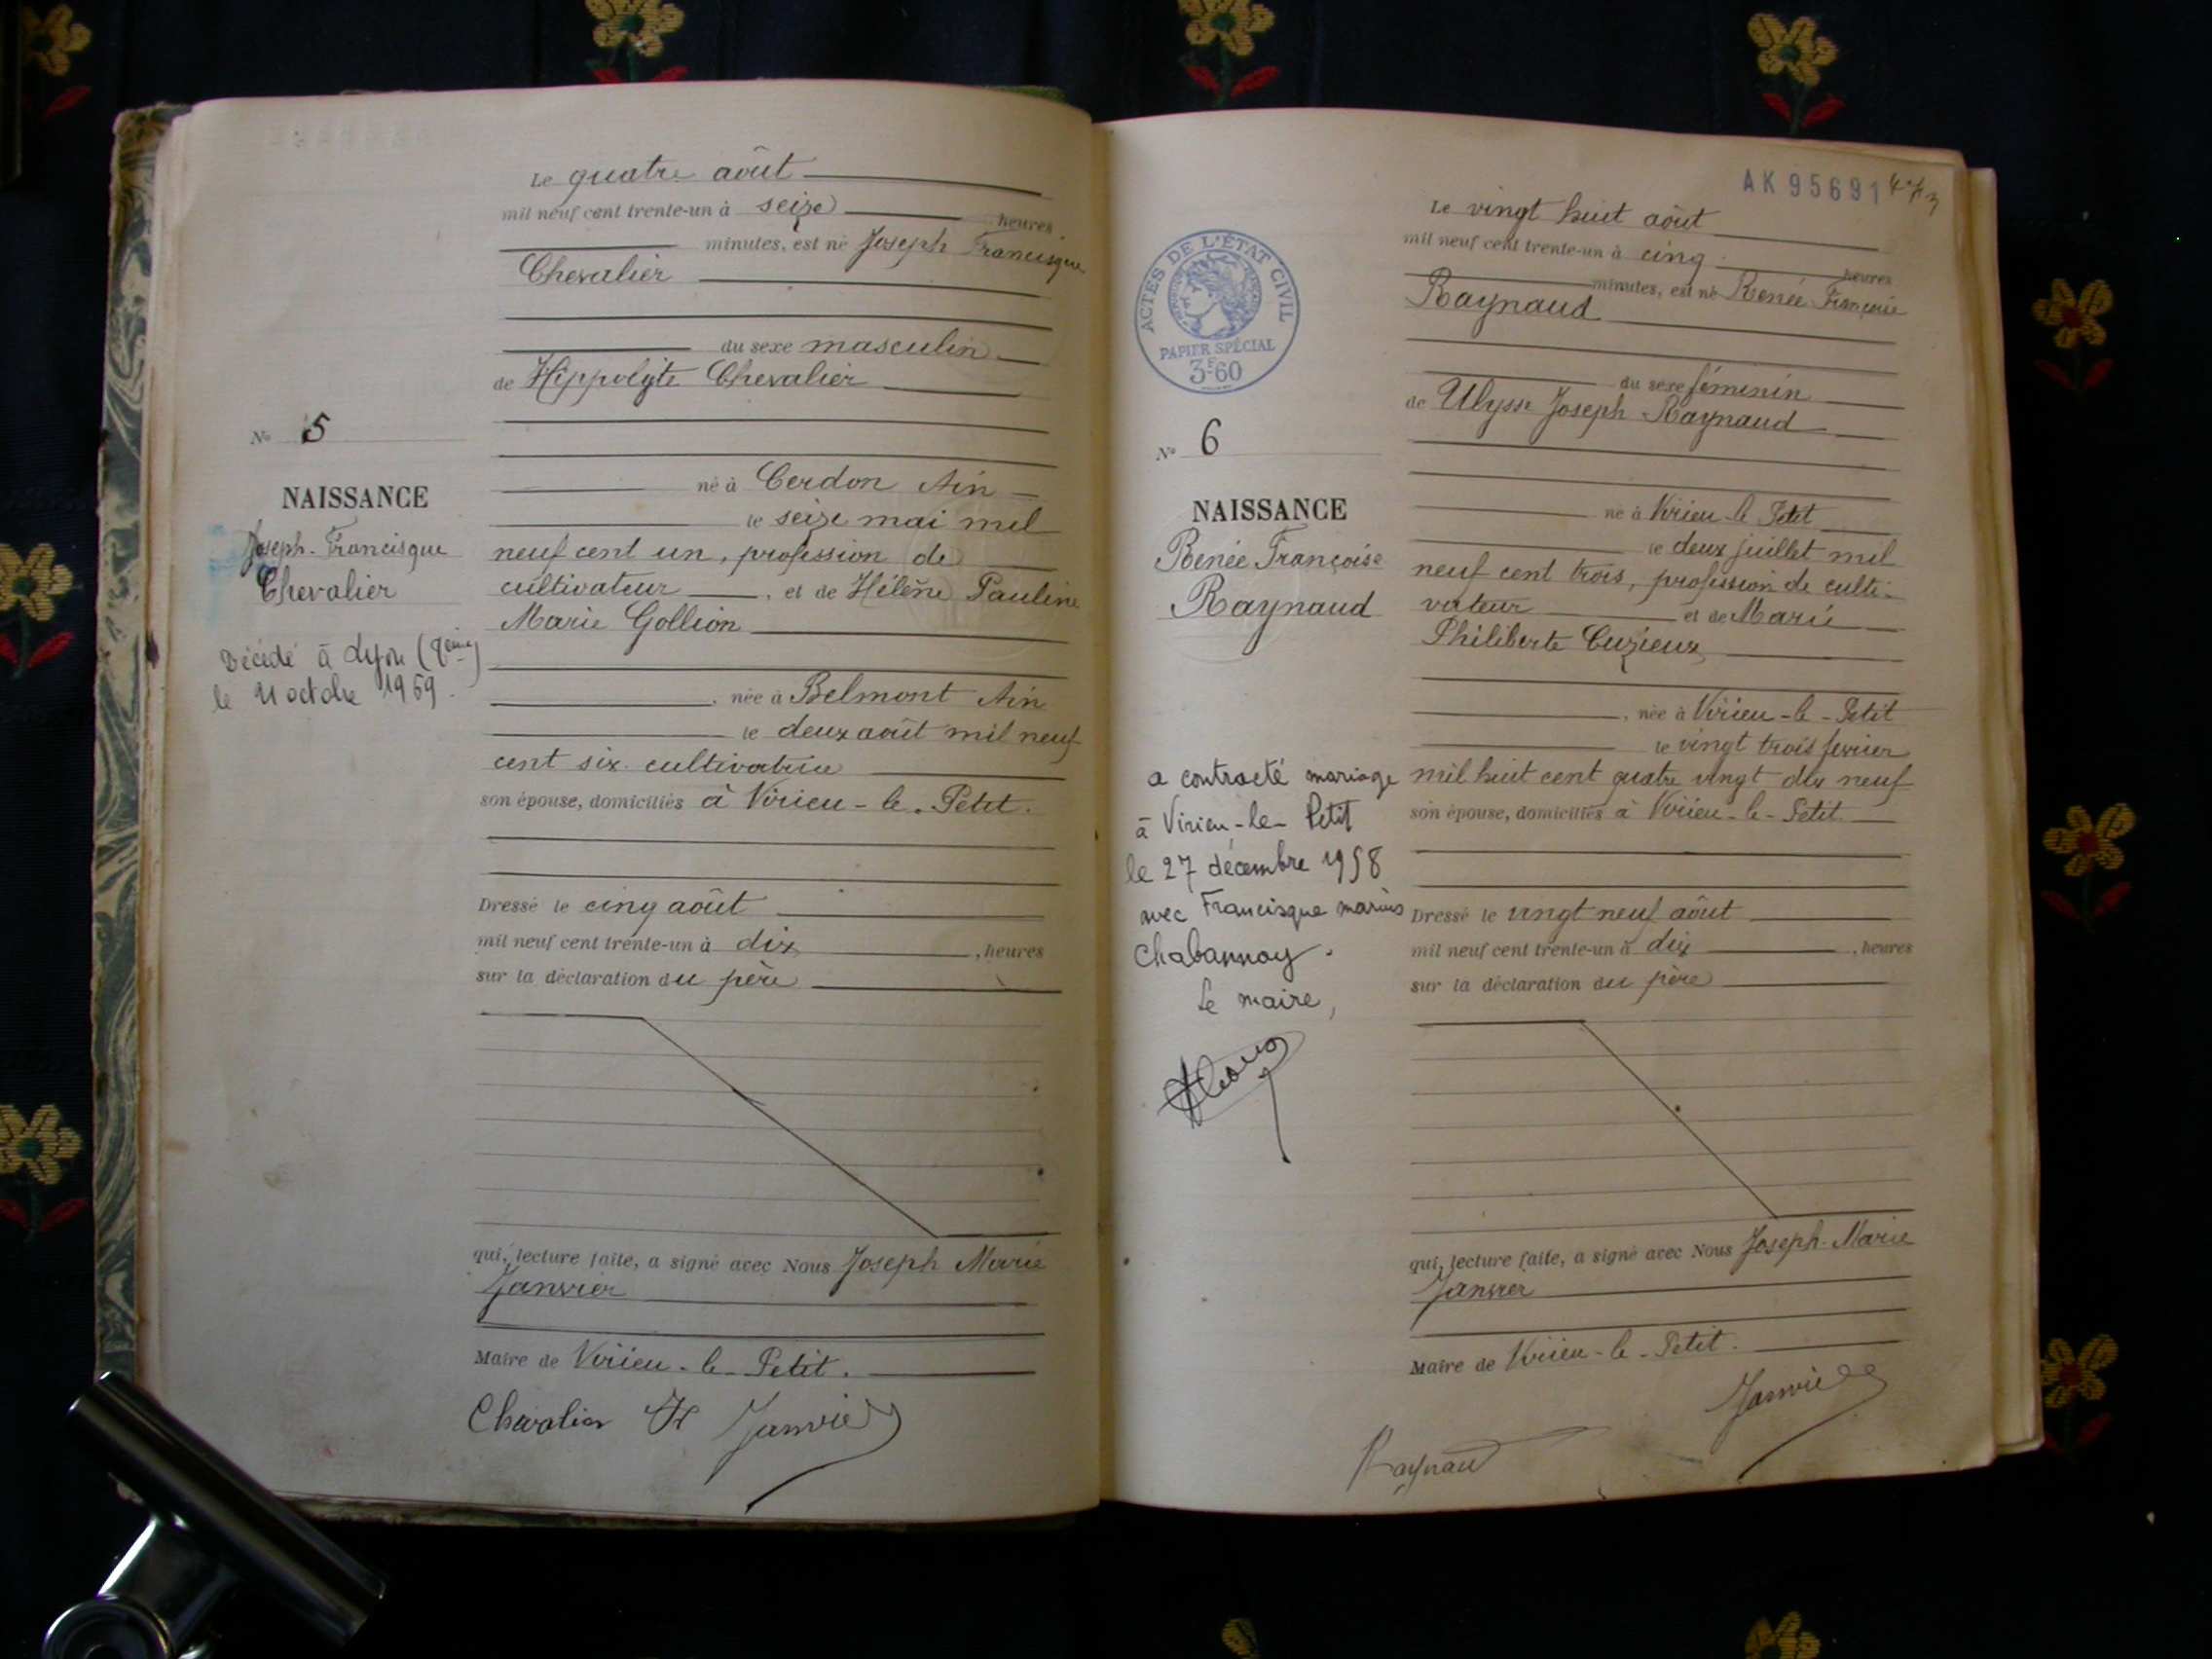 Le quatre août
mil neuf cent trente-un à seize heures
minutes, est né Joseph Francisque
Chevalier
du sexe masculin
de Hippolyte Chevalier
N° 5
né à Cerdon Ain
NAISSANCE
le seize mai mil
Joseph-Francisque
neuf cent un, profession de
Chevalier
cultivateur, et de Hélène Pauline
Marie Gollion
Décédé à Lyon
le octobre 1969.
née à Belmont Ain
le deux août mil neuf
cent six cultivatrice
son épouse, domiciliés à Virieu-le-Petit.
Dressé le cinq août
mil neuf cent trente-un à dix, heures
sur la déclaration du père
qui, lecture faite, a signé avec Nous Joseph Marie
Janvier
Maire de Virieu-le-Petit.
Chevalier H Janvier
AK 95691
Le vingt huit août
mil neuf cent trente-un à cinq heures
minutes, est né Renée Françoise
Raynaud
ACTES DE L'ÉTAT CIVIL
PAPIER SPÉCIAL
3F60
du sexe féminin
de Ulysse Joseph Raynaud
N° 6
né à Virieu-le-Petit
NAISSANCE
le deux juillet mil
Renée Françoise
neuf cent trois, profession de culti-
Raynaud
vateur et de Marie
Philiberte Cuzieux
née à Virieu-le-Petit
le vingt trois février
mil huit cent quatre vingt dix neuf
son épouse, domiciliés à Virieu-le-Petit
a contracté mariage
à Virieu-le-Petit
le 27 décembre 1958
avec Francisque marius
Chabannay.
Le maire,
Dressé le vingt neuf août
mil neuf cent trente-un à dix, heures
sur la déclaration du père
qui, lecture faite, a signé avec Nous Joseph-Marie
Janvier
Maire de Virieu-le-Petit.
Janvier
Raynaud